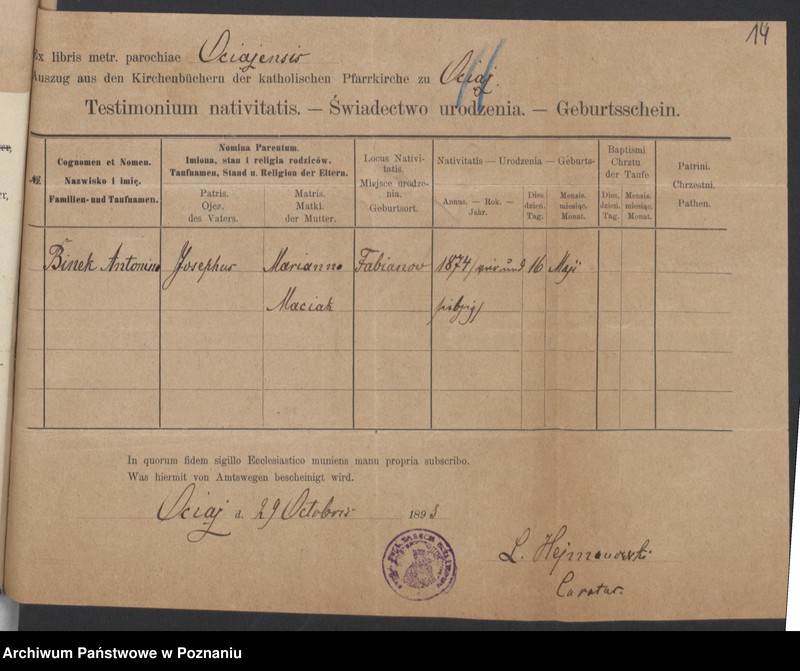 14
Ex libris metr. parochiae Ociajensis
Auszug aus den Kirchenbüchern der katholischen Pfarrkirche zu Ociaj.
Testimonium nativitatis. — Świadectwo urodzenia. — Geburtsschein.
№.
Cognomen et Nomen.
Nazwisko i imię.
Familien- und Taufnamen.
Nomina Parentum.
Imiona, stan i religia rodziców.
Taufnamen, Stand u. Religion der Eltern.
Patris.
Ojca.
des Vaters.
Matris.
Matki.
der Mutter.
Locus Nativi-
tatis.
Miejsce urodze-
nia.
Geburtsort.
Nativitatis — Urodzenia — Geburts-
Annus. — Rok. —
Jahr.
Dies
dzień.
Tag.
Mensis.
miesiąc.
Monat.
Baptismi
Chrztu
der Taufe
Dies.
dzień.
Tag.
Mensis.
miesiąc.
Monat.
Patrini.
Chrzestni.
Pathen.
Binek Antonius Josephus Marianna Fabianov 1874 /vier und 16 Maji
Maciak siebzig/
In quorum fidem sigillo Ecclesiastico muniens manu propria subscribo.
Was hiermit von Amtswegen bescheinigt wird.
Ociaj d. 29 Octobris 1893
L. Hejmanowski
Curatus.
Archiwum Państwowe w Poznaniu